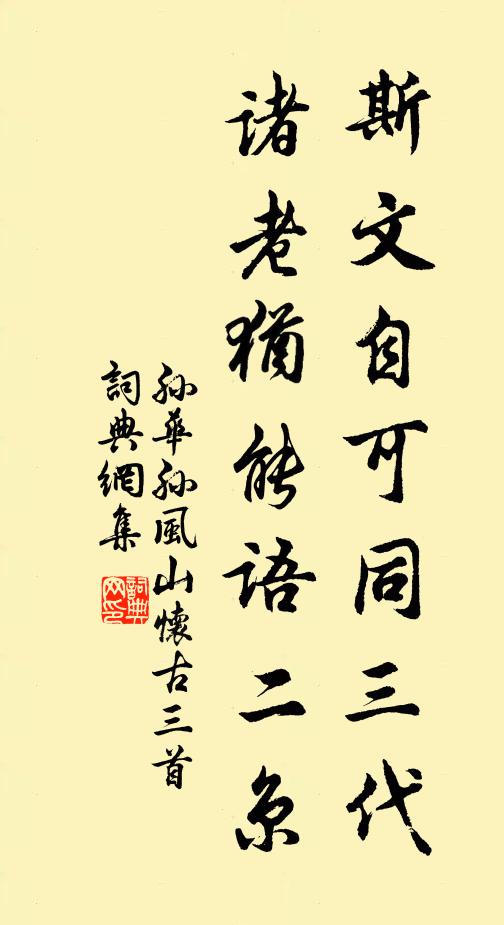 斯文自可同三代
諸老猶能語二京
孫華孫風山懷古三首
詞典網集
詞典網印